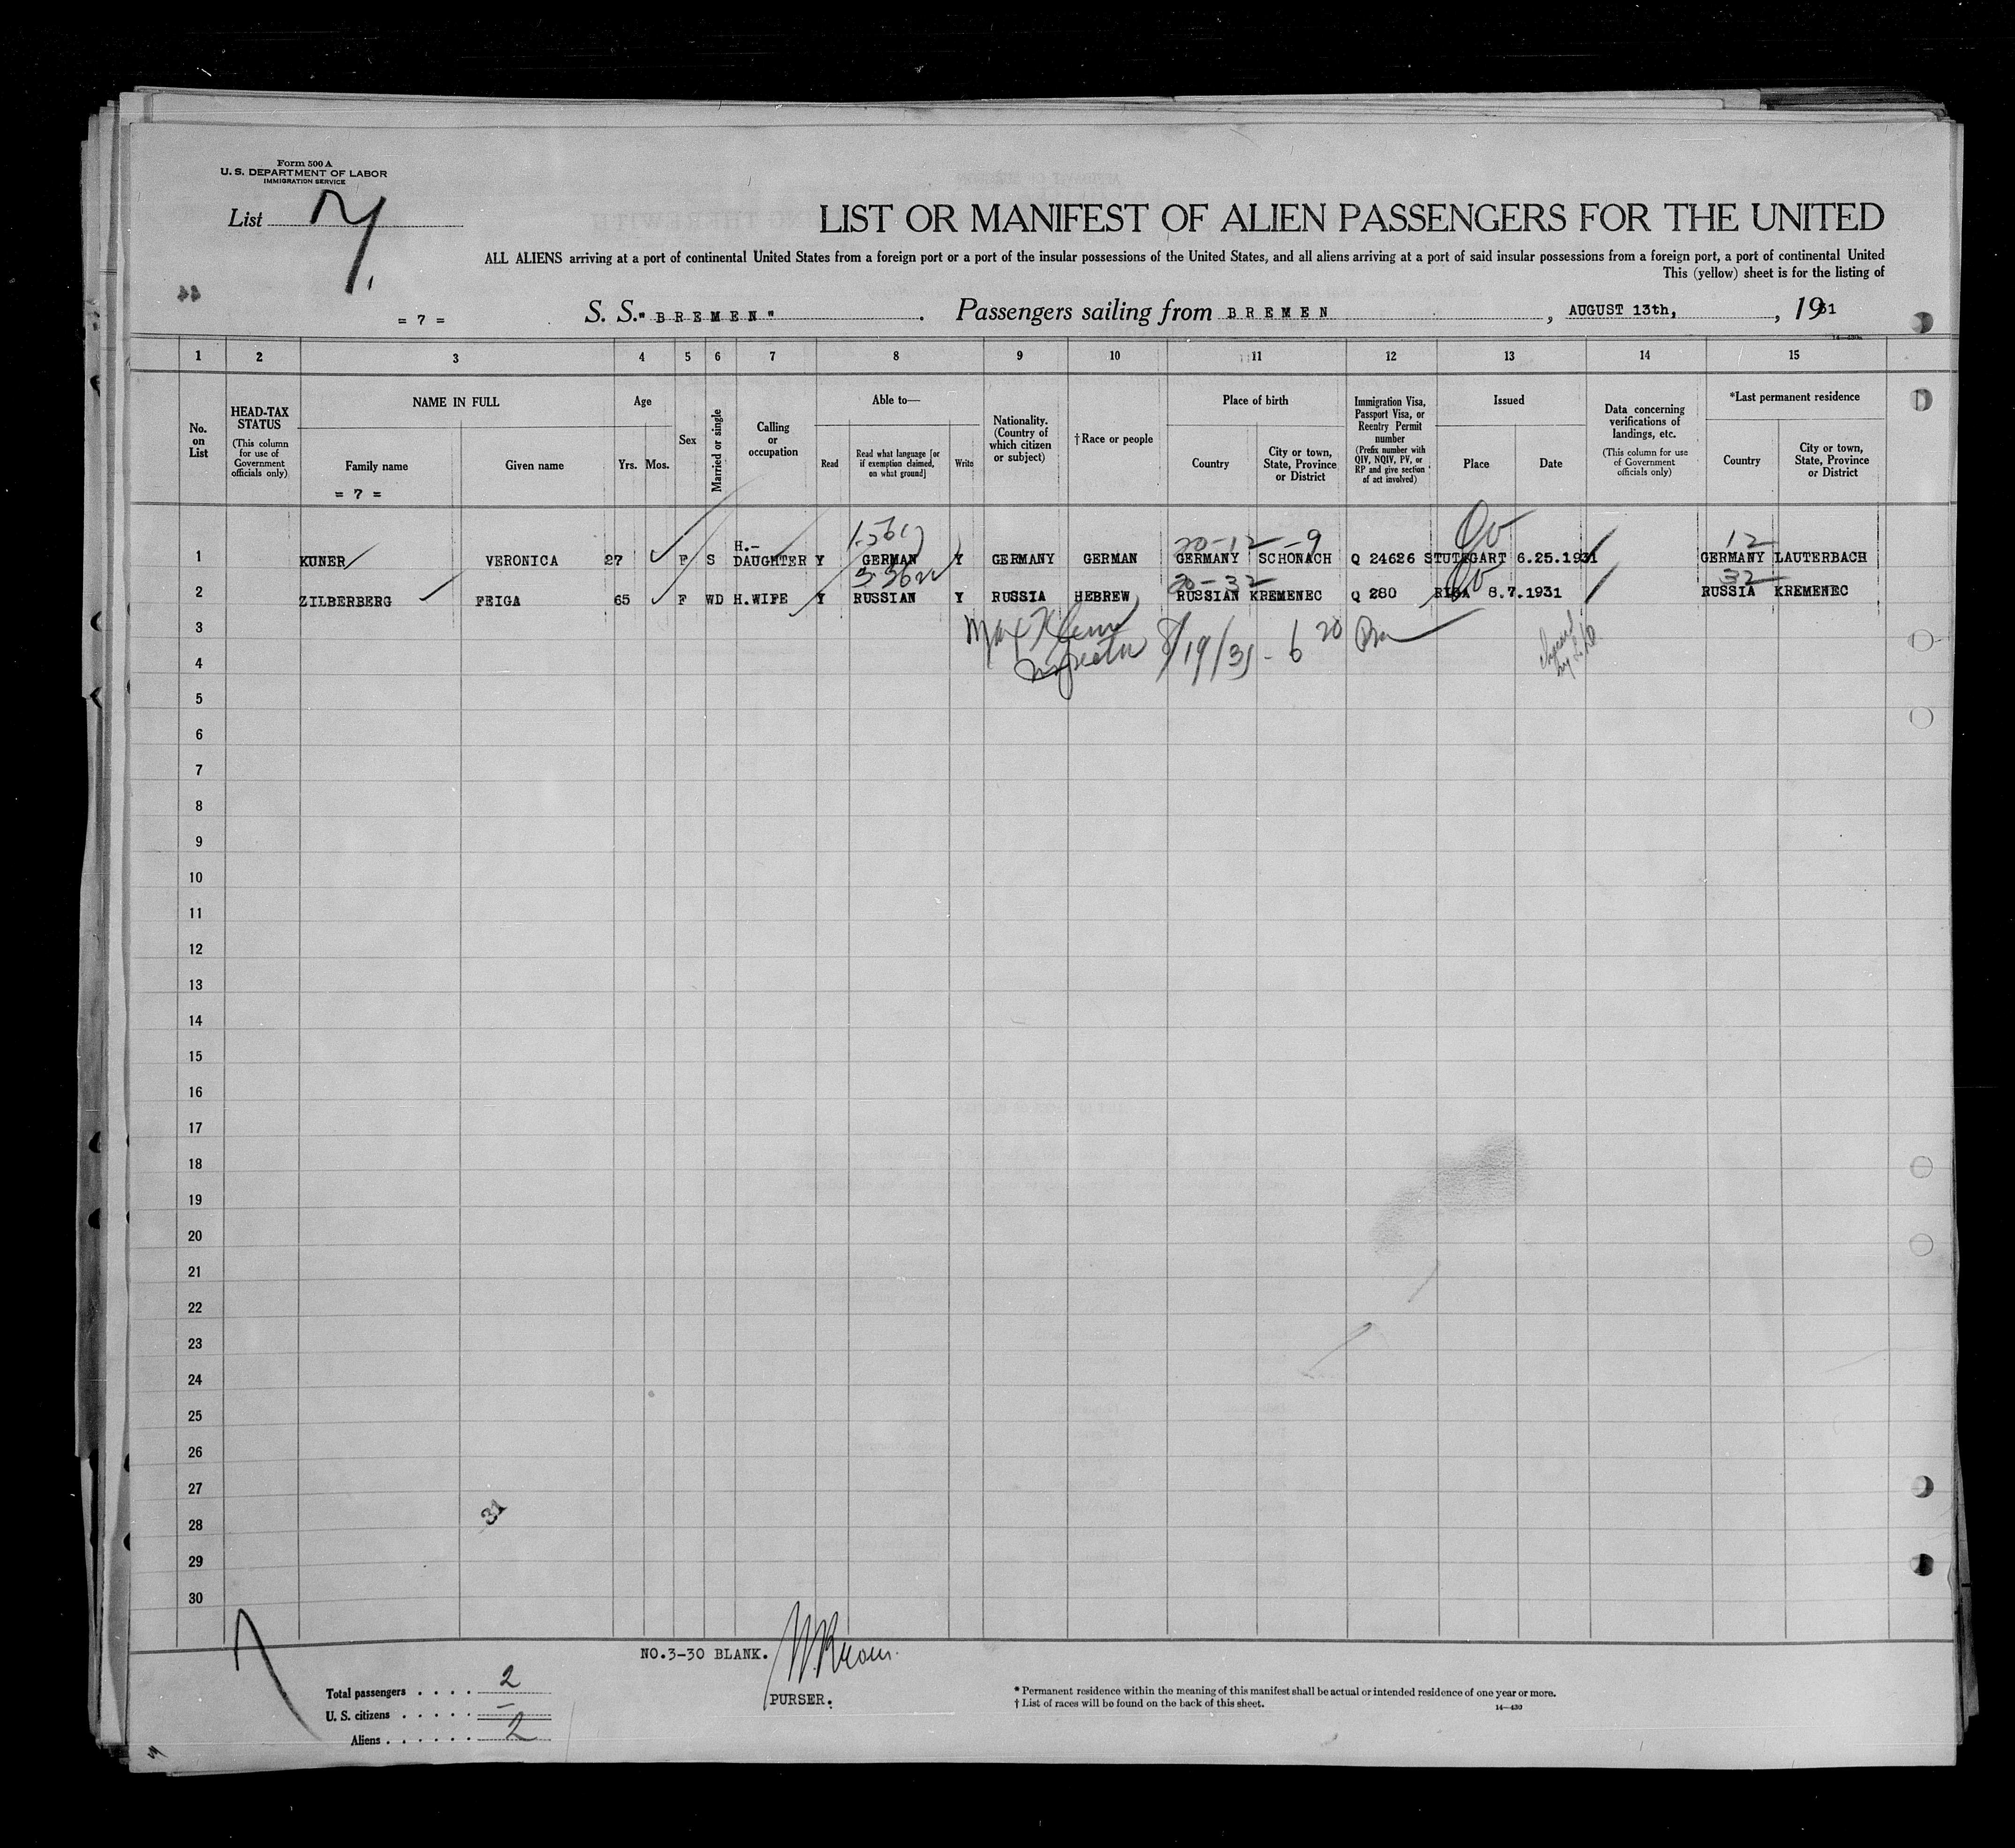 Form 500 A
U. S. DEPARTMENT OF LABOR
IMMIGRATION SERVICE
List 7.
LIST OR MANIFEST OF ALIEN PASSENGERS FOR THE UNITED
ALL ALIENS arriving at a port of continental United States from a foreign port or a port of the insular possessions of the United States, and all aliens arriving at a port of said insular possessions from a foreign port, a port of continental United
This (yellow) sheet is for the listing of
44
= 7 = S. S. "BREMEN". Passengers sailing from BREMEN, AUGUST 13th, , 1931
14-430a
1 2 3 4 5 6 7 8 9 10 11 12 13 14 15
HEAD-TAX STATUS (This column for use of Government officials only)
No. on List
NAME IN FULL
Family name Given name
= 7 =
Age
Yrs. Mos.
Sex
Married or single
Calling or occupation
Able to—
Read Read what language [or if exemption claimed, on what ground] Write
Nationality. (Country of which citizen or subject)
†Race or people
Place of birth
Country City or town, State, Province or District
Immigration Visa, Passport Visa, or Reentry Permit number (Prefix number with QIV, NQIV, PV, or RP and give section of act involved)
Issued
Place Date
Data concerning verifications of landings, etc. (This column for use of Government officials only)
*Last permanent residence
Country City or town, State, Province or District
20-12 -9 12
1 KUNER VERONICA 27 F S H.-DAUGHTER Y GERMAN Y GERMANY GERMAN GERMANY SCHONACH Q 24626 STUTTGART 6.25.1931 GERMANY LAUTERBACH
20-32 32
2 ZILBERBERG FEIGA 65 F WD H.WIFE Y RUSSIAN Y RUSSIA HEBREW RUSSIAN KREMENEC Q 280 RIGA 8.7.1931 RUSSIA KREMENEC
3
Inspector 8/19/31 - 6 20
4
5
6
7
8
9
10
11
12
13
14
15
16
17
18
19
20
21
22
23
24
25
26
27
28
29
30
31
NO.3-30 BLANK.
PURSER.
Total passengers . . . . 2
U. S. citizens . . . . . —
Aliens . . . . . . 2
* Permanent residence within the meaning of this manifest shall be actual or intended residence of one year or more.
† List of races will be found on the back of this sheet.
14-430